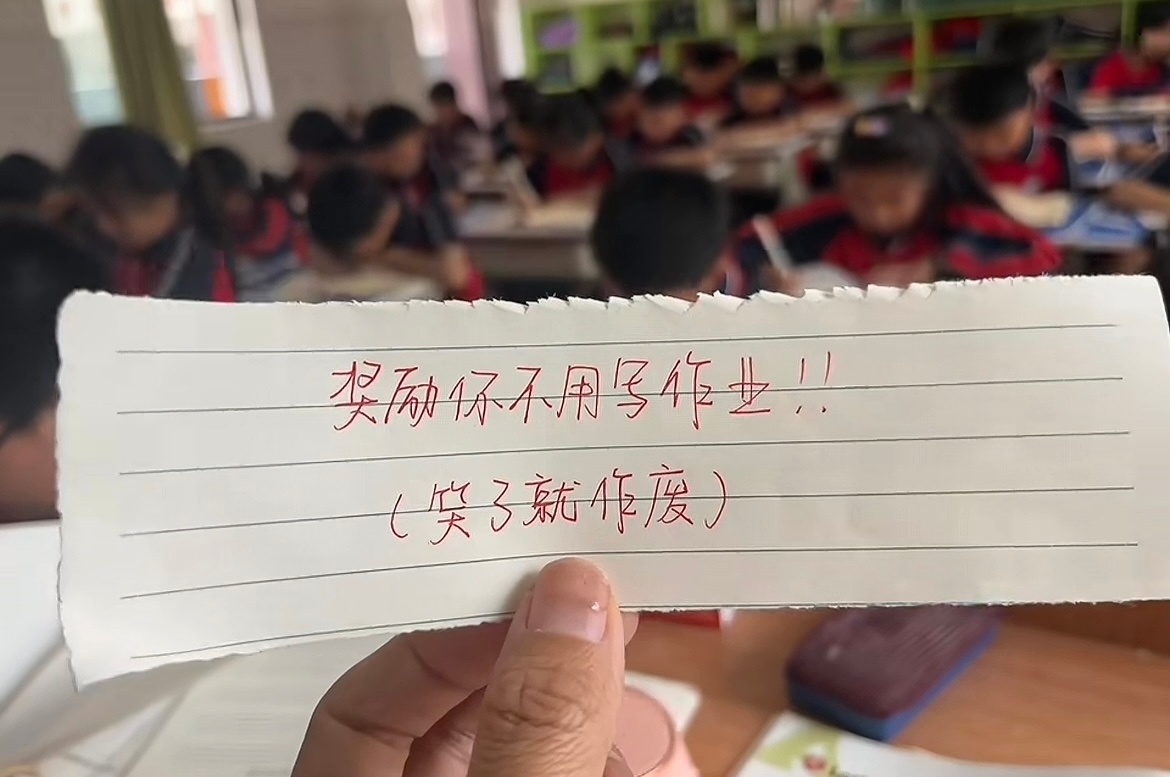 奖励你不用写作业!!
(笑了就作废)